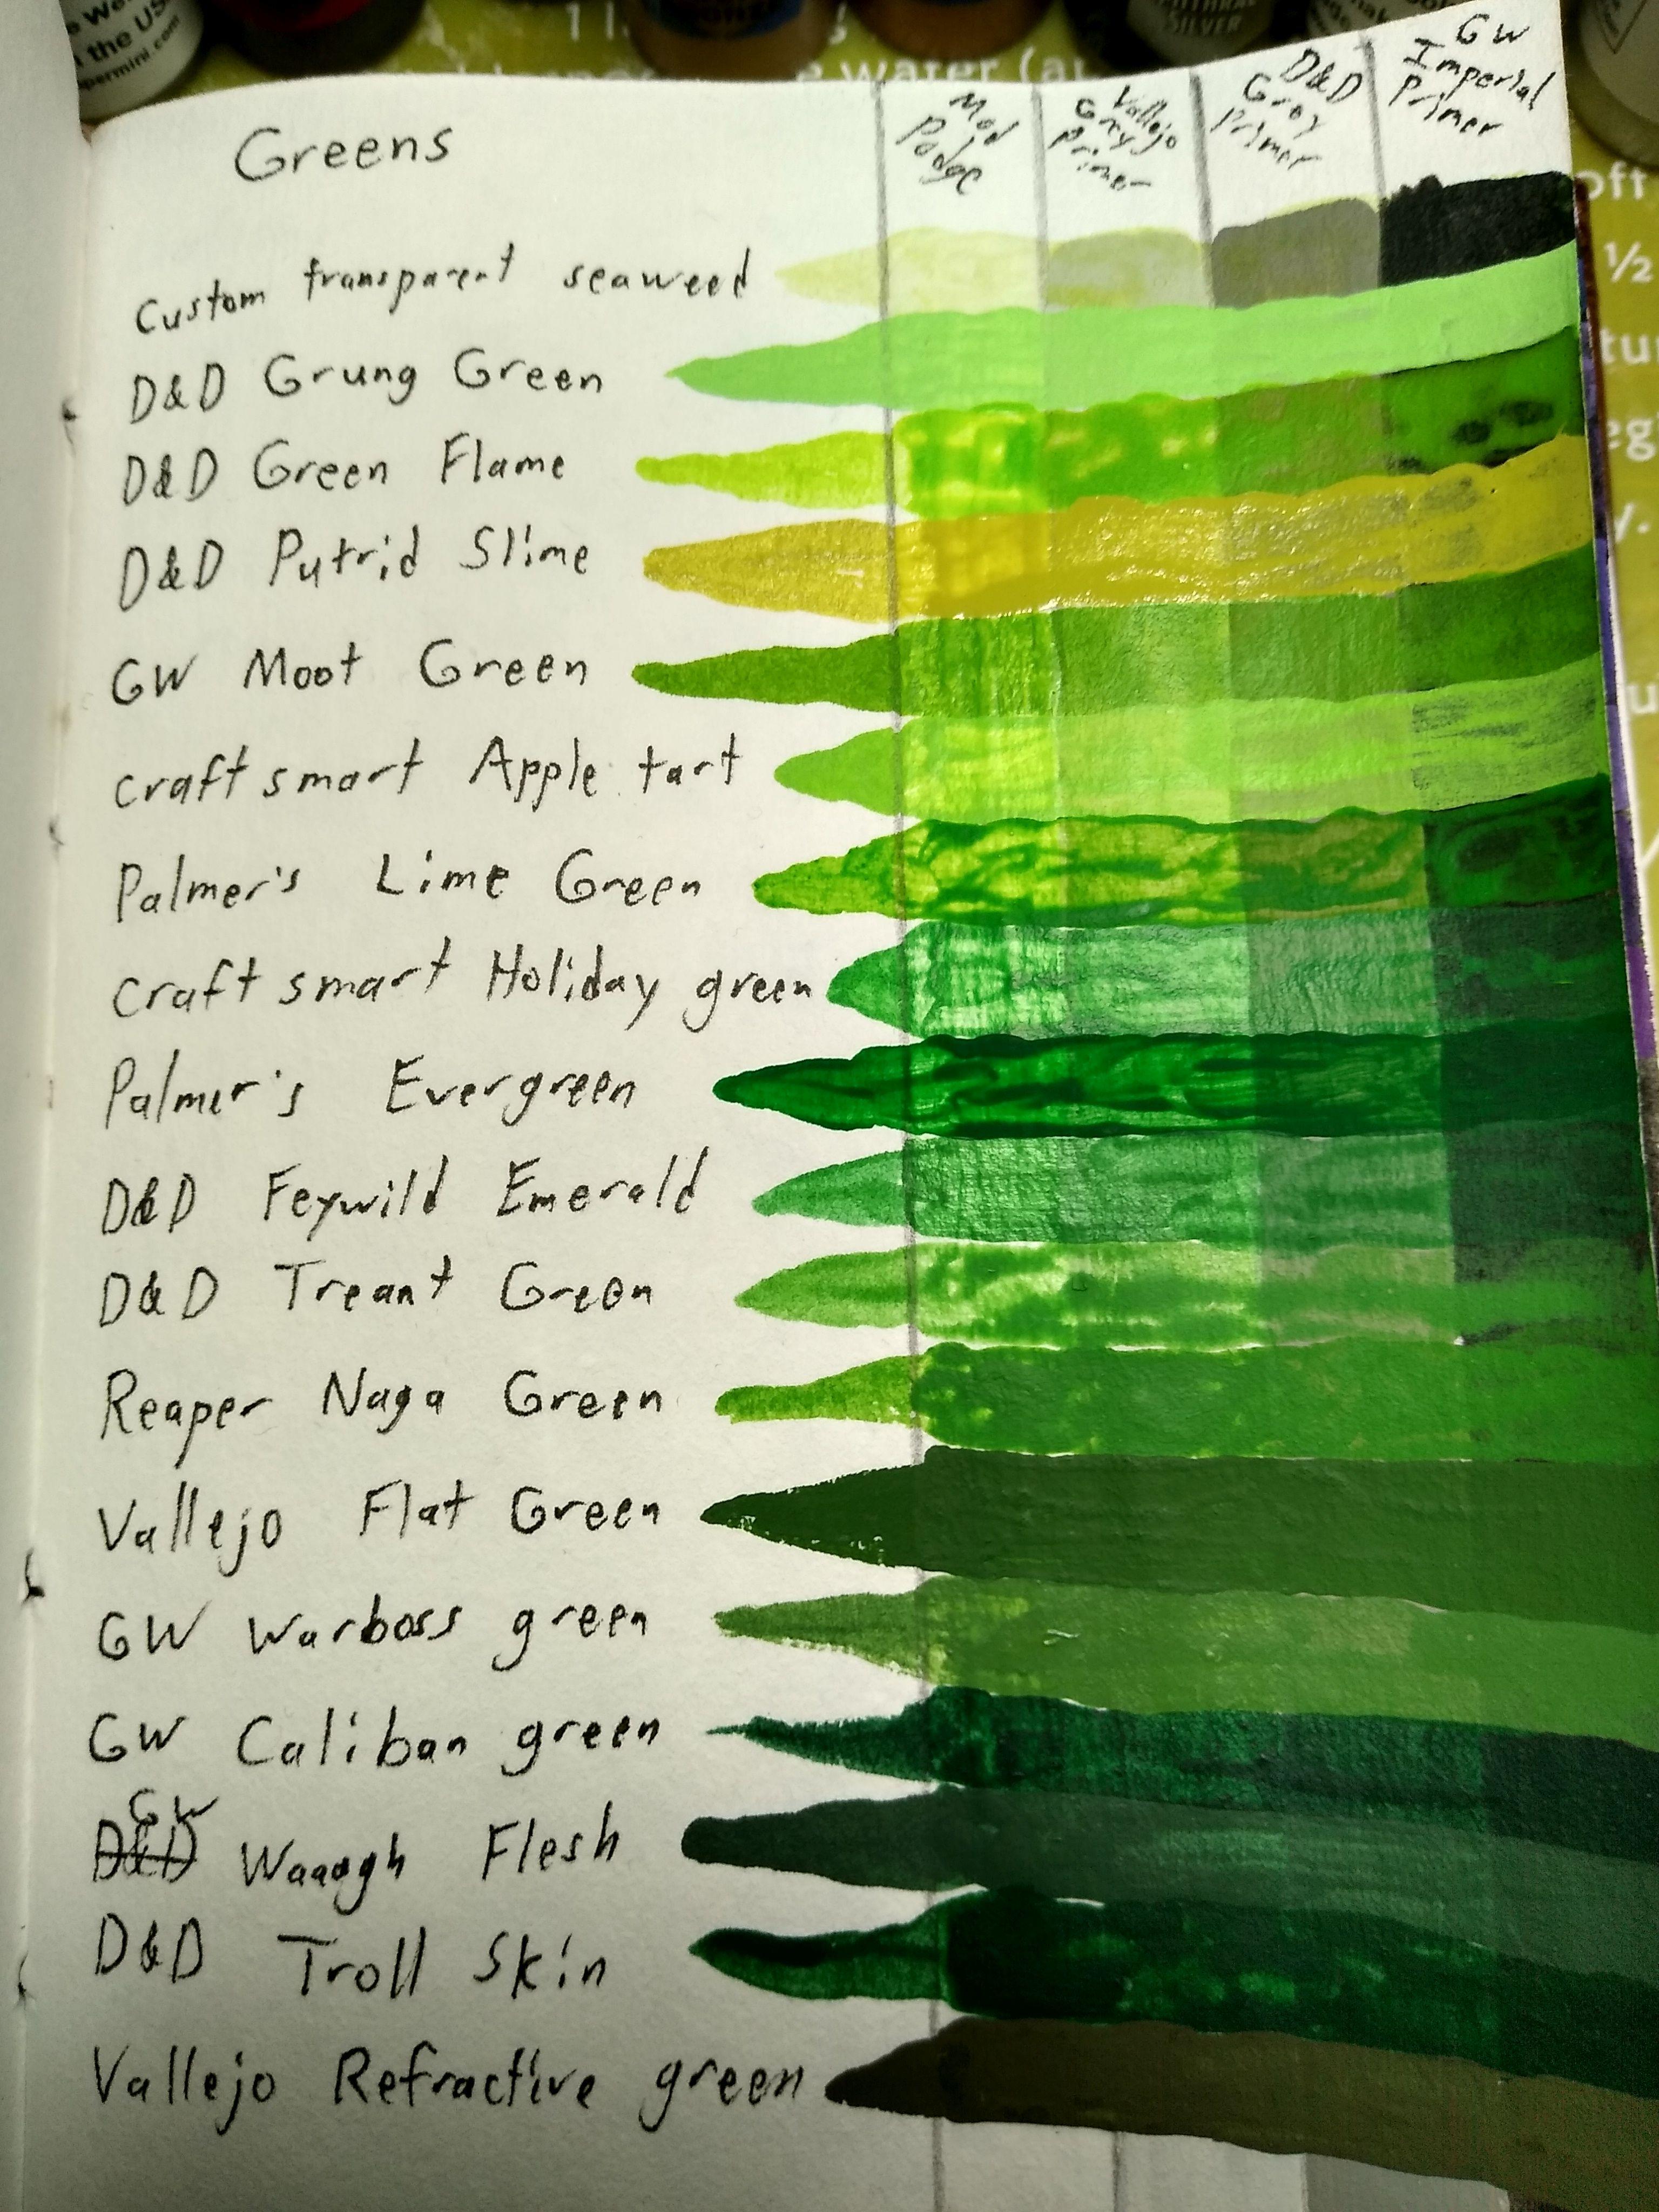 the US
permini.com
SILVER
e water (a
Greens
Mod
Podge
Vallejo
Grey
primer
D&D
Gray
Primer
GW
Imperial
Primer
oft
½
Custom transparent seaweed
tu
D&D Grung Green
eg
D&D Green Flame
y.
D&D Putrid Slime
GW Moot Green
u
craft smart Apple tart
Palmer's Lime Green
craft smart Holiday green
Palmer's Evergreen
D&D Feywild Emerald
D&D Treant Green
Reaper Naga Green
Vallejo Flat Green
GW Warboss green
GW Caliban green
GW
D&D Waaagh Flesh
D&D Troll Skin
Vallejo Refractive green